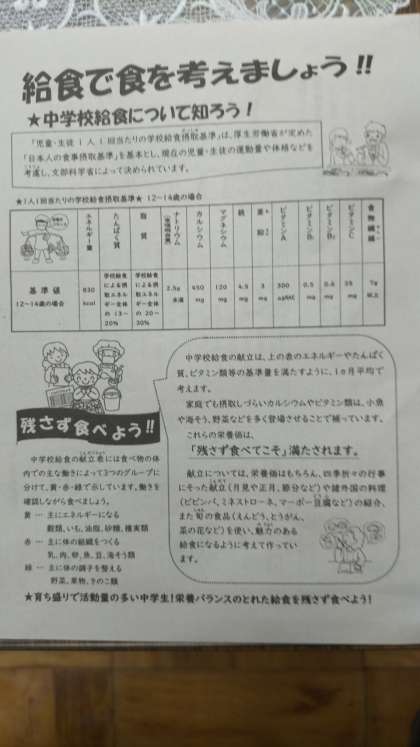 給食で食を考えましょう!!
★中学校給食について知ろう!
「児童・生徒1人1回当たりの学校給食摂取基準」は、厚生労働省が定めた
「日本人の食事摂取基準」を基本とし、現在の児童・生徒の運動量や体格などを
考慮し、文部科学省によって決められています。
★1人1回当たりの学校給食摂取基準★ 12〜14歳の場合
エネルギー量 たんぱく質 脂質 ナトリウム カルシウム マグネシウム 鉄 亜鉛 ビタミンA ビタミンB₁ ビタミンB₂ ビタミンC 食物繊維
基準値
12〜14歳の場合
830 kcal
学校給食による摂取エネルギー全体の13〜20%
学校給食による摂取エネルギー全体の20〜30%
2.5g未満
450 mg
120 mg
4.5 mg
3 mg
300 μgRAE
0.5 mg
0.6 mg
35 mg
7g以上
中学校給食の献立は、上の表のエネルギーやたんぱく
質、ビタミン類等の基準量を満たすように、1ヶ月平均で
考えます。
家庭でも摂取しづらいカルシウムやビタミン類は、小魚
や海そう、野菜などを多く登場させることで補っています。
これらの栄養価は、
「残さず食べてこそ」満たされます。
献立については、栄養価はもちろん、四季折々の行事
にそった献立(お月見、正月、節分など)や諸外国の料理
(ビビンバ、ミネストローネ、マーボー豆腐など)の紹介、
また旬の食品(えんどう、とうがん、
菜の花など)を使い、魅力のある
給食になるように考えて作ってい
ます。
残さず食べよう!!
中学校給食の献立表には食べ物の体
内での主な働きによって3つのグループに
分けて、黄・赤・緑で示しています。働きを
確認しながら食べましょう。
黄 … 主にエネルギーになる
穀類、いも、油脂、砂糖、種実類
赤 … 主に体の組織をつくる
乳、肉、卵、魚、豆、海そう類
緑 … 主に体の調子を整える
野菜、果物、きのこ類
★育ち盛りで活動量の多い中学生!栄養バランスのとれた給食を残さず食べよう!